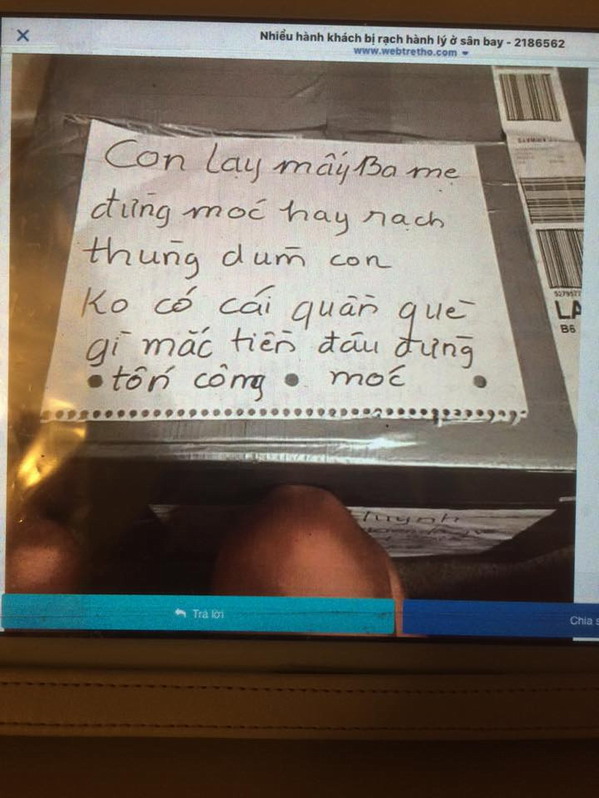 Nhiều hành khách bị rạch hành lý ở sân bay - 2186562
www.webtretho.com
Con lạy mấy Ba mẹ
đừng moć hay rạch
thùng dùm con
Ko có cái quần què
gì mắc tiền đâu đừng
•tốn công • moć •
LA
B6
huynh
Trả lời
Chia s